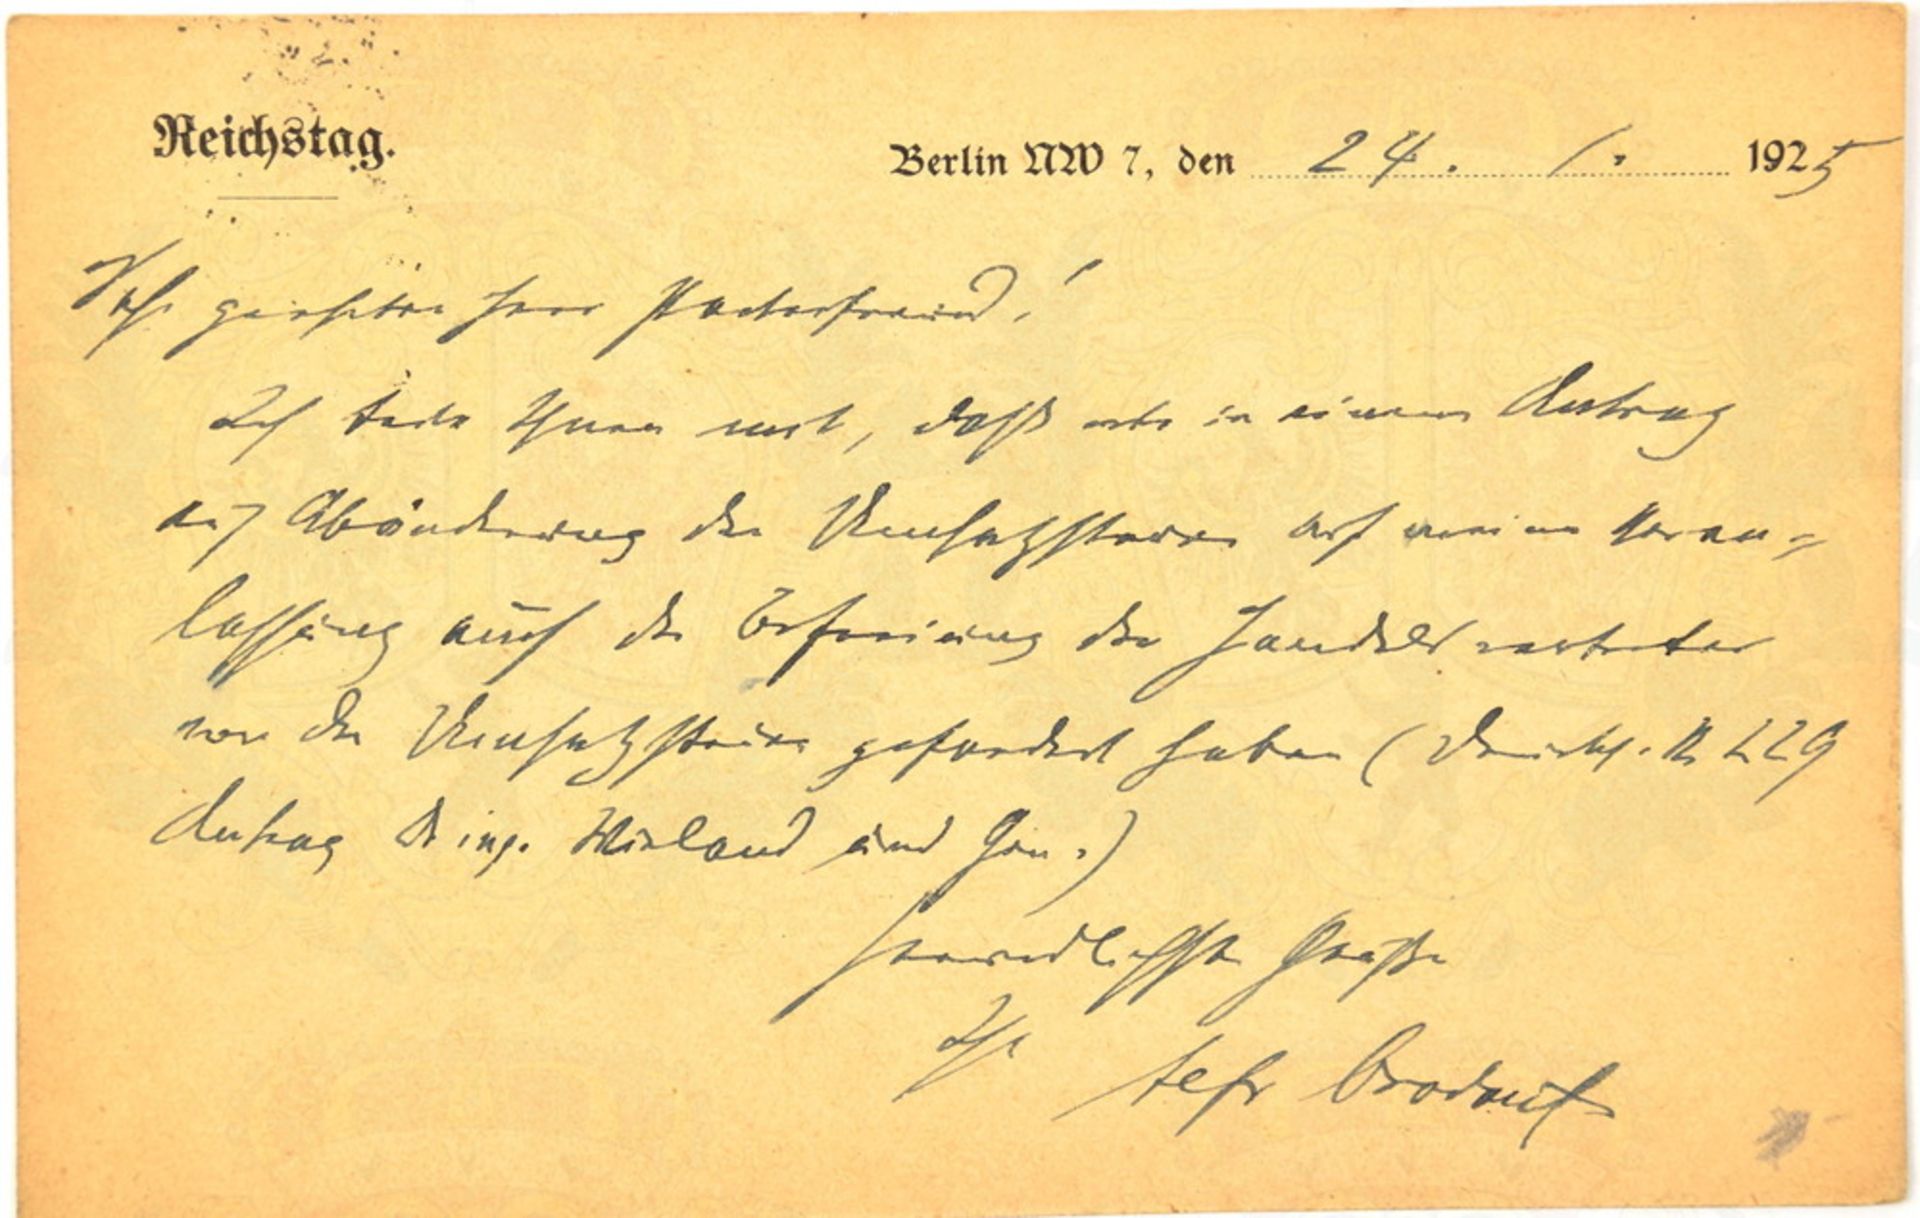 Reichstag.
Berlin NW 7, den 24. 1. 1925
Sehr geehrter Herr Parteifreund!
Ich teile Ihnen mit, daß wir in einem Antrag
auf Abänderung der Umsatzsteuer auf meine Veran-
lassung auch die Befreiung der Handelsvertreter
von der Umsatzsteuer gefordert haben (Drucks. N 229
Antrag Dr ing. Wieland und Gen.)
Freundlichste Grüße
Ihr sehr Brodauf